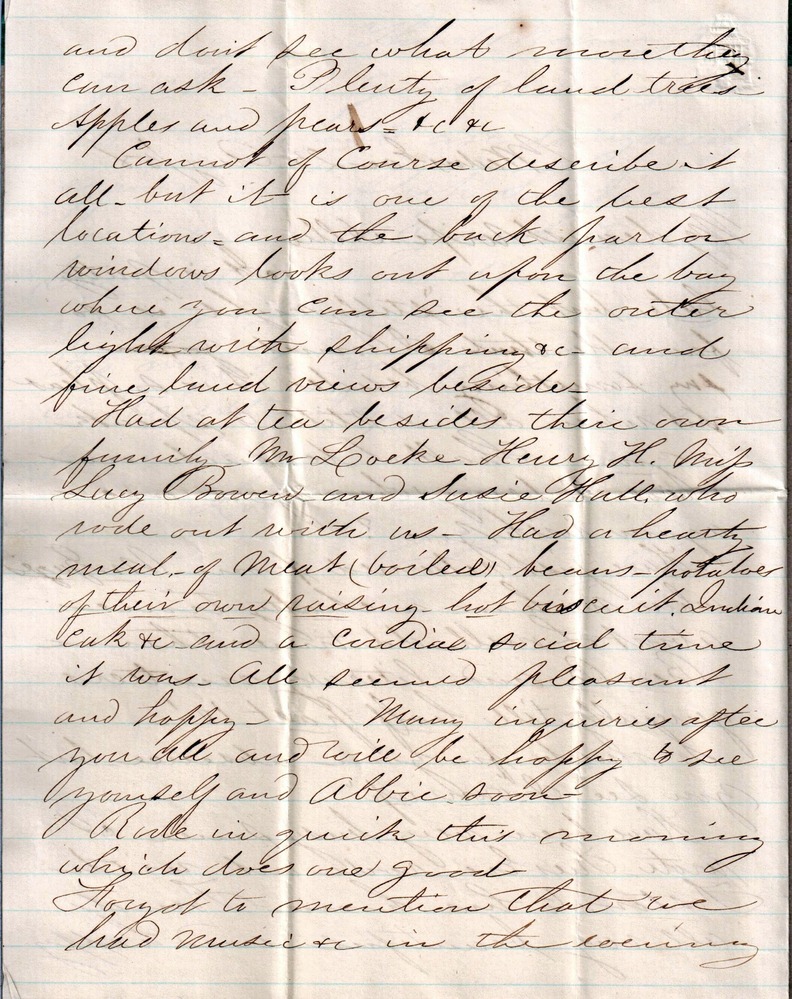 and dont see what more they
can ask - Plenty of land trees
Apples and pears = &c &c
Cannot of Course describe it
all - but it is one of the best
locations = and the back parlor
windows looks out upon the bay
where you can see the outer
light with shipping &c - and
fine land views beside -
Had at tea besides their own
family Mr Locke - Henry H. Miss
Lucy Bowen and Susie Hall. who
rode out with us - Had a hearty
meal - of Meat (boiled) beans - potatoes
of their own raising - hot biscuit. Indian
cak &c and a cordial social time
it was - All seemed pleasant
and happy - Many inquiries after
you all and will be happy to see
yourself and Abbie soon -
Rode in quick this morning
which does one good
Forgot to mention that we
had music &c in the evening